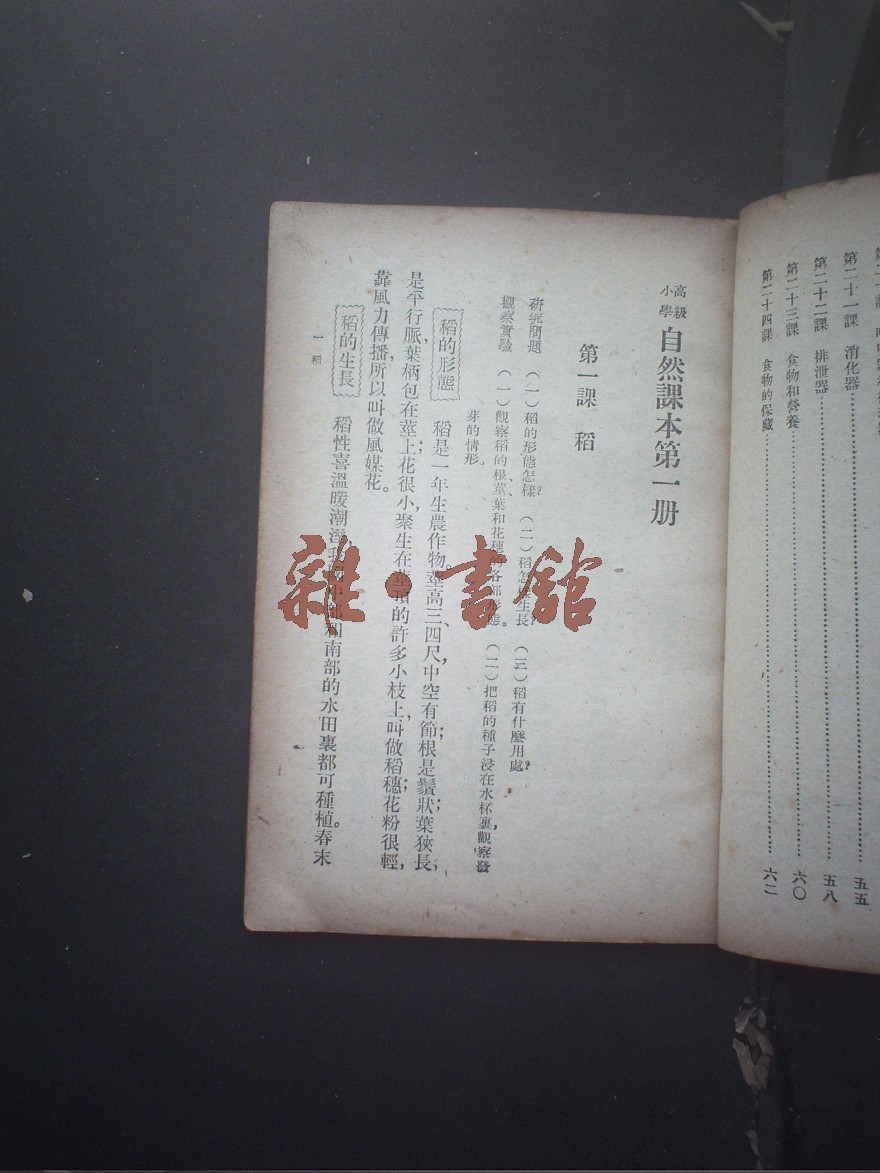 第二十一課　消化器……五五
第二十二課　排泄器……五八
第二十三課　食物和營養……六〇
第二十四課　食物的保藏……六二
高級小學 自然課本第一册
第一課　稻
研究問題　（一）稻的形態怎樣？　（二）稻怎樣生長？　（三）稻有什麼用處？
觀察實驗　（一）觀察稻的根、莖、葉和花穗的各部形態。　（二）把稻的種子浸在水杯裏，觀察發
芽的情形。
稻的形態　稻是一年生農作物。莖高三、四尺，中空有節；根是鬚狀；葉狹長，
是平行脈，葉柄包在莖上；花很小，聚生在莖頂的許多小枝上，叫做稻穗；花粉很輕，
靠風力傳播，所以叫做風媒花。
稻的生長　稻性喜溫暖潮溼，我國中部和南部的水田裏都可種植。春末
一　稻
雜·書館